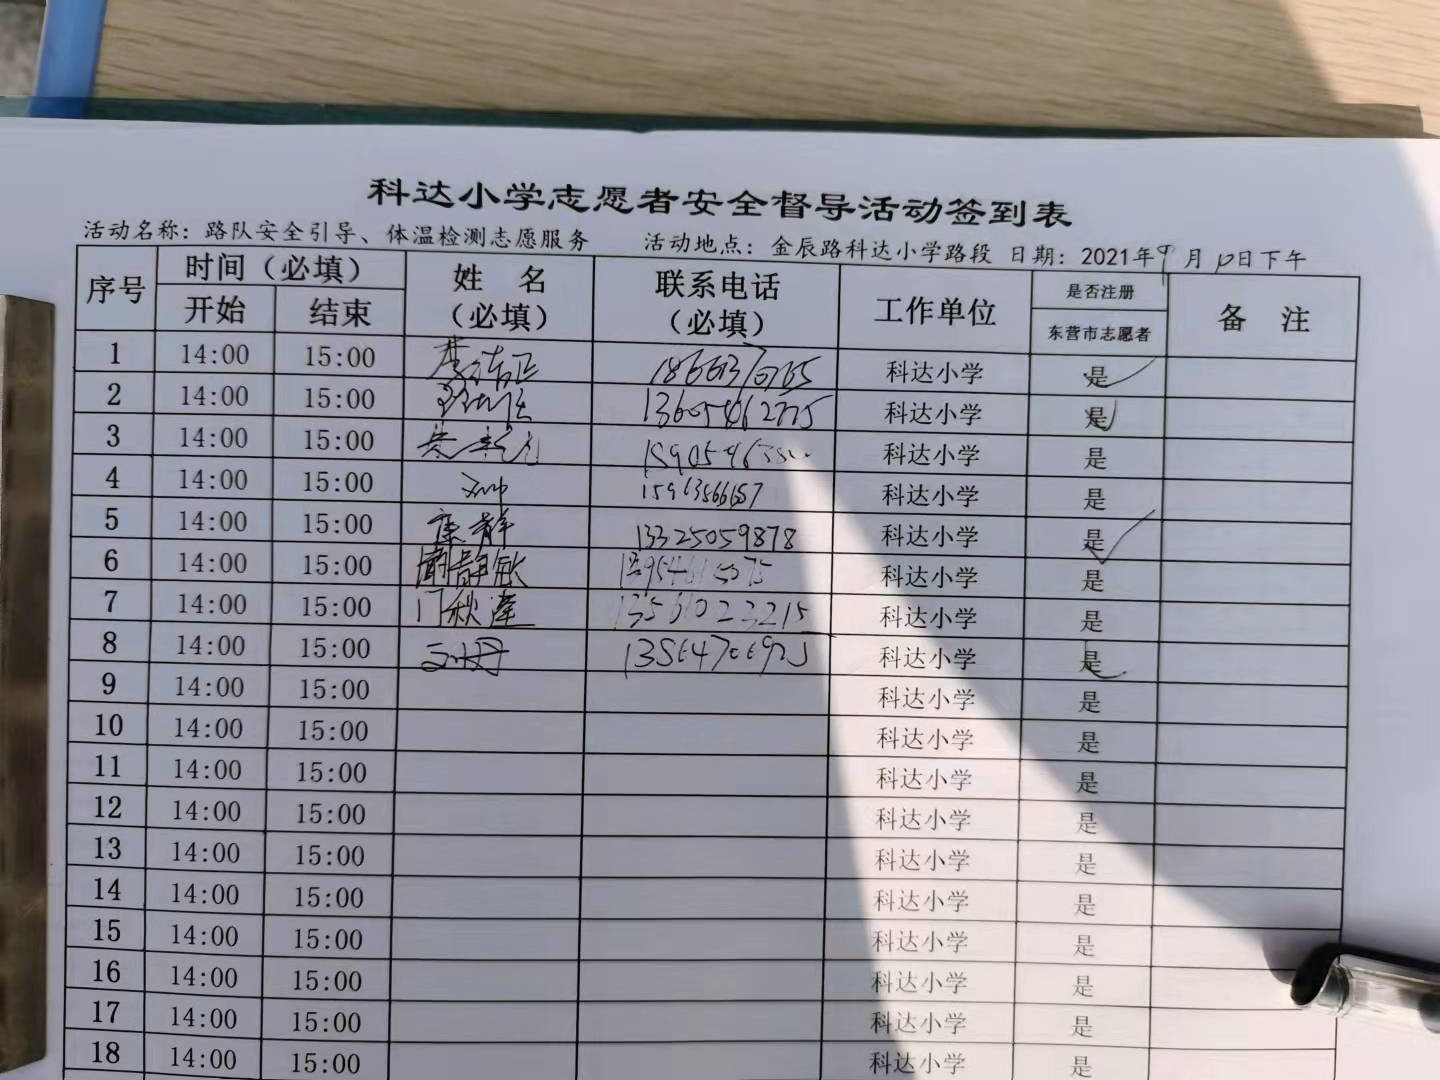 科达小学志愿者安全督导活动签到表
活动名称：路队安全引导、体温检测志愿服务 活动地点：金辰路科达小学路段 日期：2021年9月10日下午
序号 时间（必填） 姓 名（必填） 联系电话（必填） 工作单位 是否注册 备 注
开始 结束 东营市志愿者
1 14:00 15:00 科达小学 是
2 14:00 15:00 科达小学 是
3 14:00 15:00 科达小学 是
4 14:00 15:00 科达小学 是
5 14:00 15:00 静 13325059878 科达小学 是
6 14:00 15:00 静敏 科达小学 是
7 14:00 15:00 门秋莲 13561022215 科达小学 是
8 14:00 15:00 科达小学 是
9 14:00 15:00 科达小学 是
10 14:00 15:00 科达小学 是
11 14:00 15:00 科达小学 是
12 14:00 15:00 科达小学 是
13 14:00 15:00 科达小学 是
14 14:00 15:00 科达小学 是
15 14:00 15:00 科达小学 是
16 14:00 15:00 科达小学 是
17 14:00 15:00 科达小学 是
18 14:00 15:00 科达小学 是